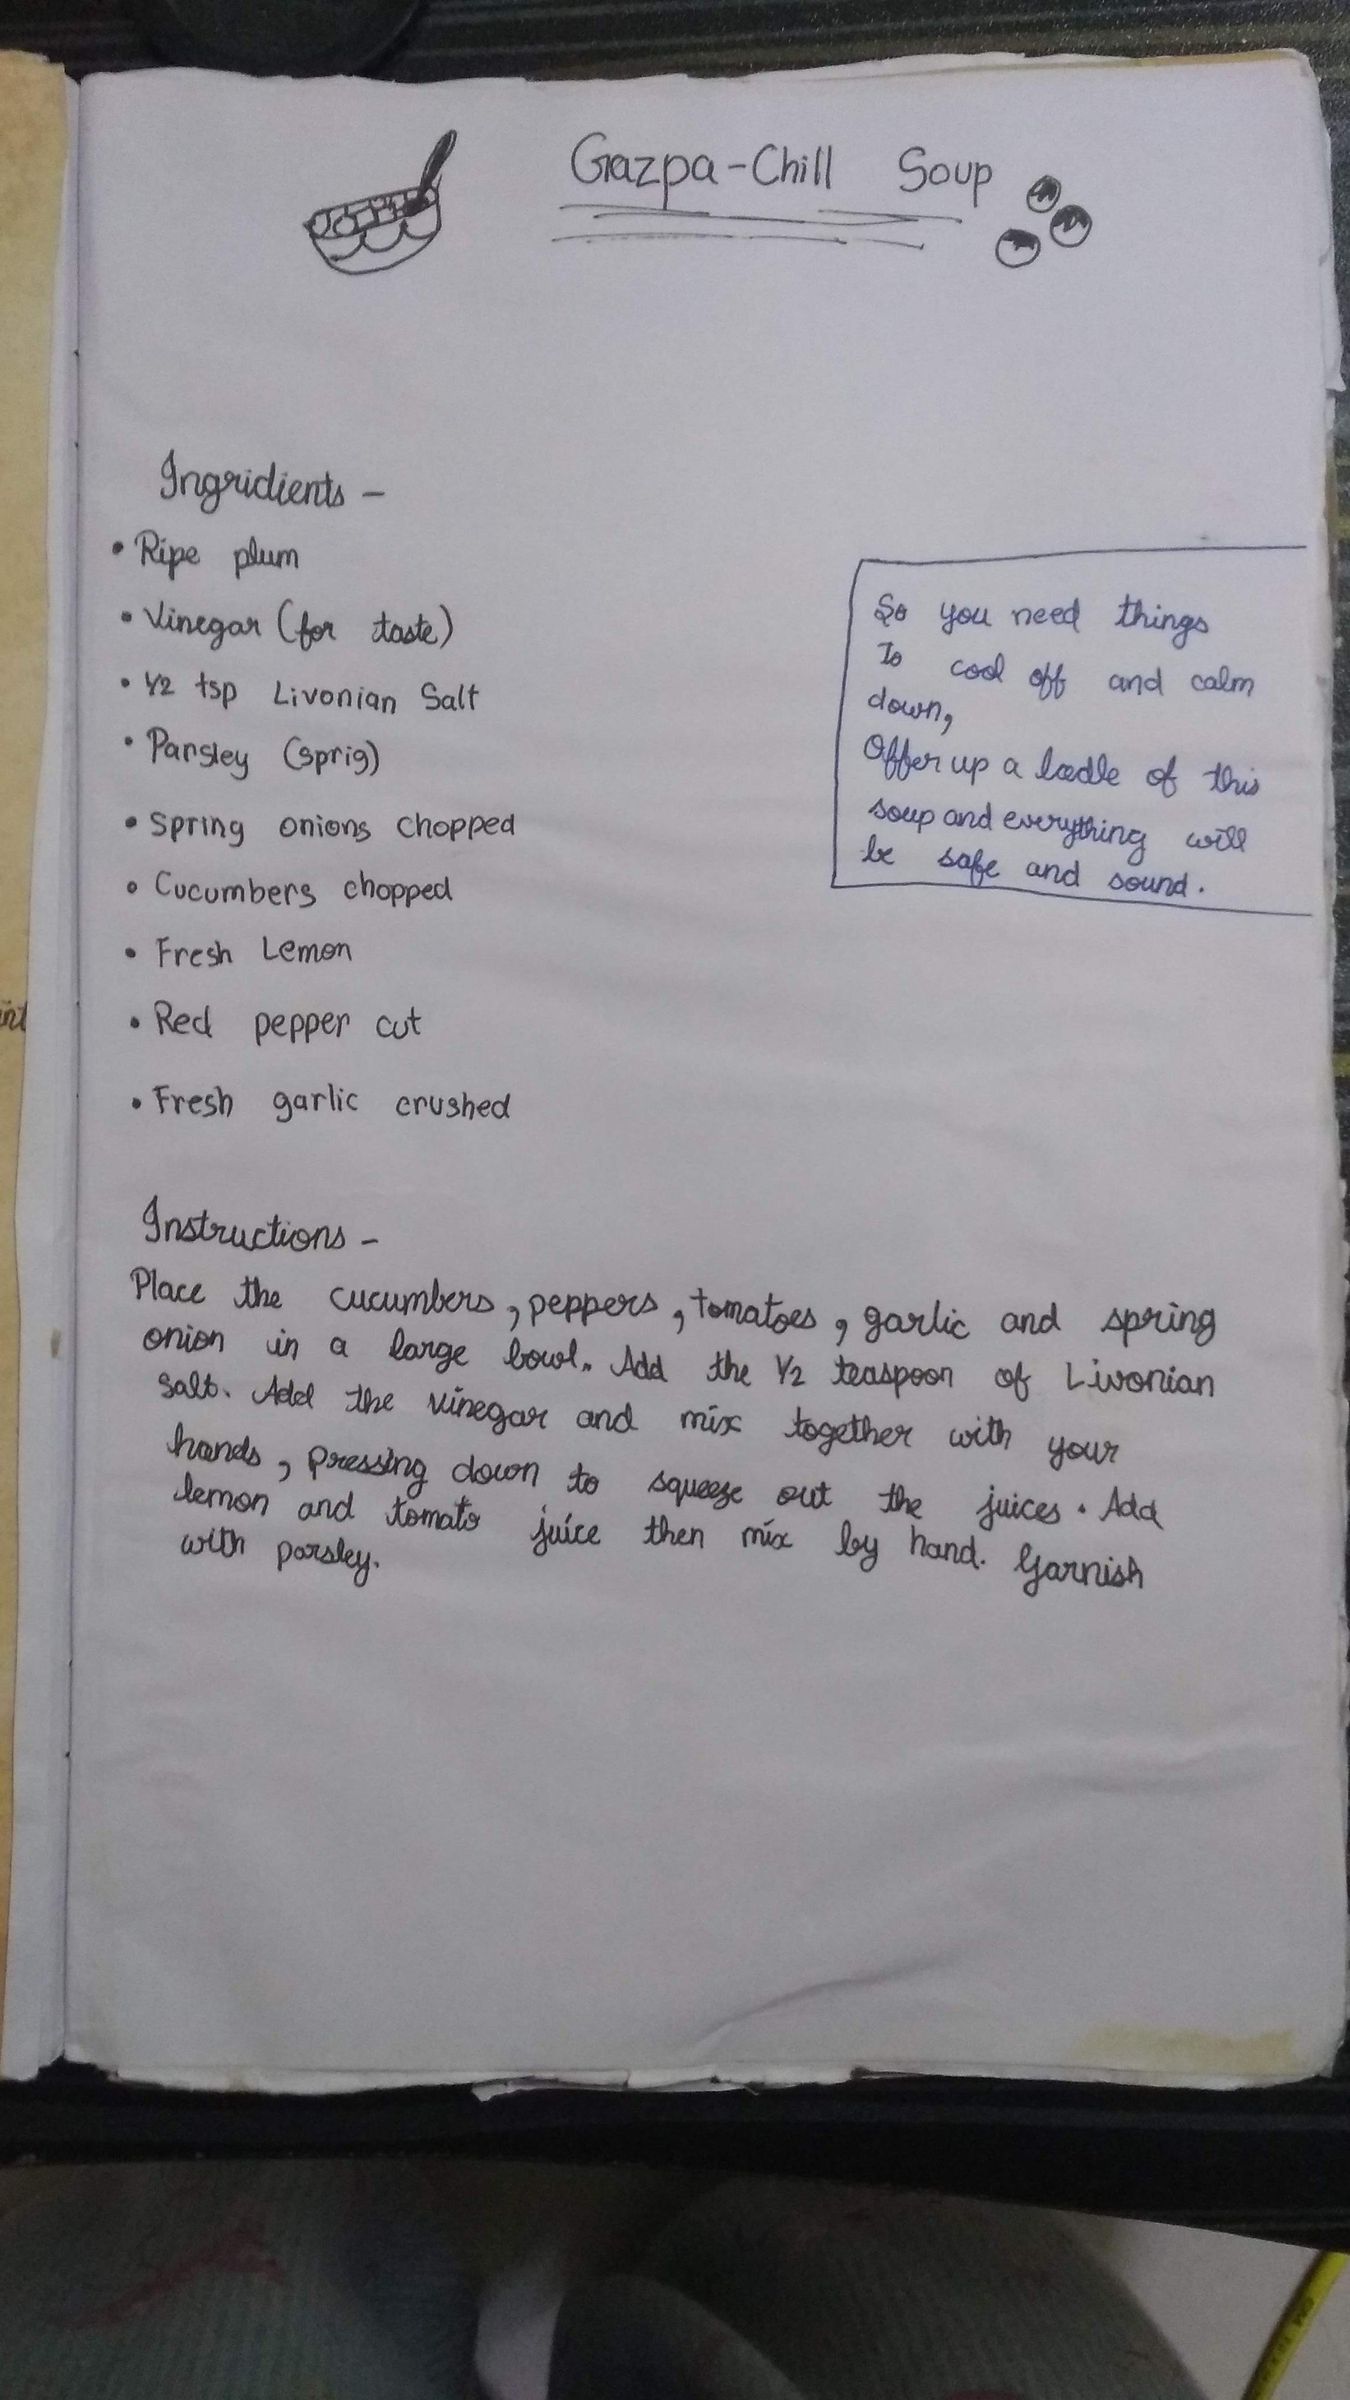 Gazpa-Chill Soup
Ingridients -
• Ripe plum
• Vinegar (for taste)
• 1/2 tsp Livonian Salt
• Parsley (sprig)
• Spring onions chopped
• Cucumbers chopped
• Fresh Lemon
• Red pepper cut
• Fresh garlic crushed
So you need things
To cool off and calm
down,
Offer up a ladle of this
soup and everything will
be safe and sound.
Instructions -
Place the cucumbers, peppers, tomatoes, garlic and spring
onion in a large bowl. Add the 1/2 teaspoon of Livonian
salt. Add the vinegar and mix together with your
hands, pressing down to squeeze out the juices. Add
lemon and tomato juice then mix by hand. Garnish
with parsley.